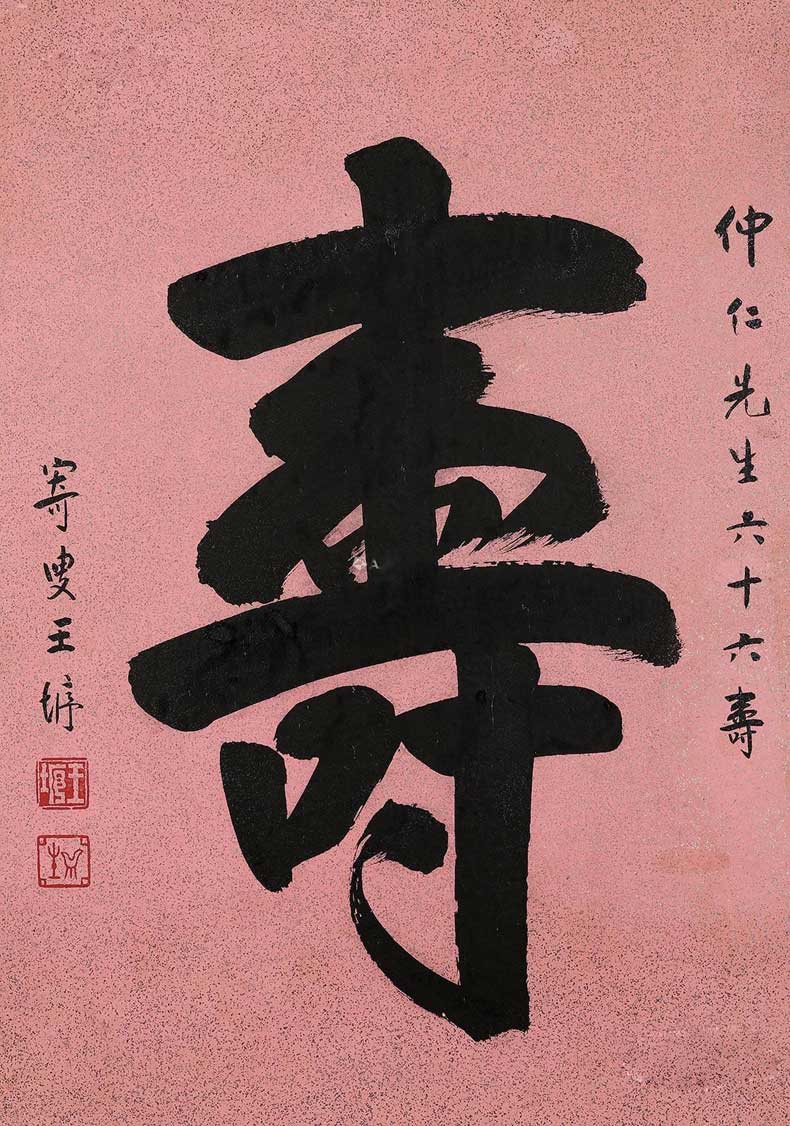 仲仁先生六十六壽
壽
寄叟王垿